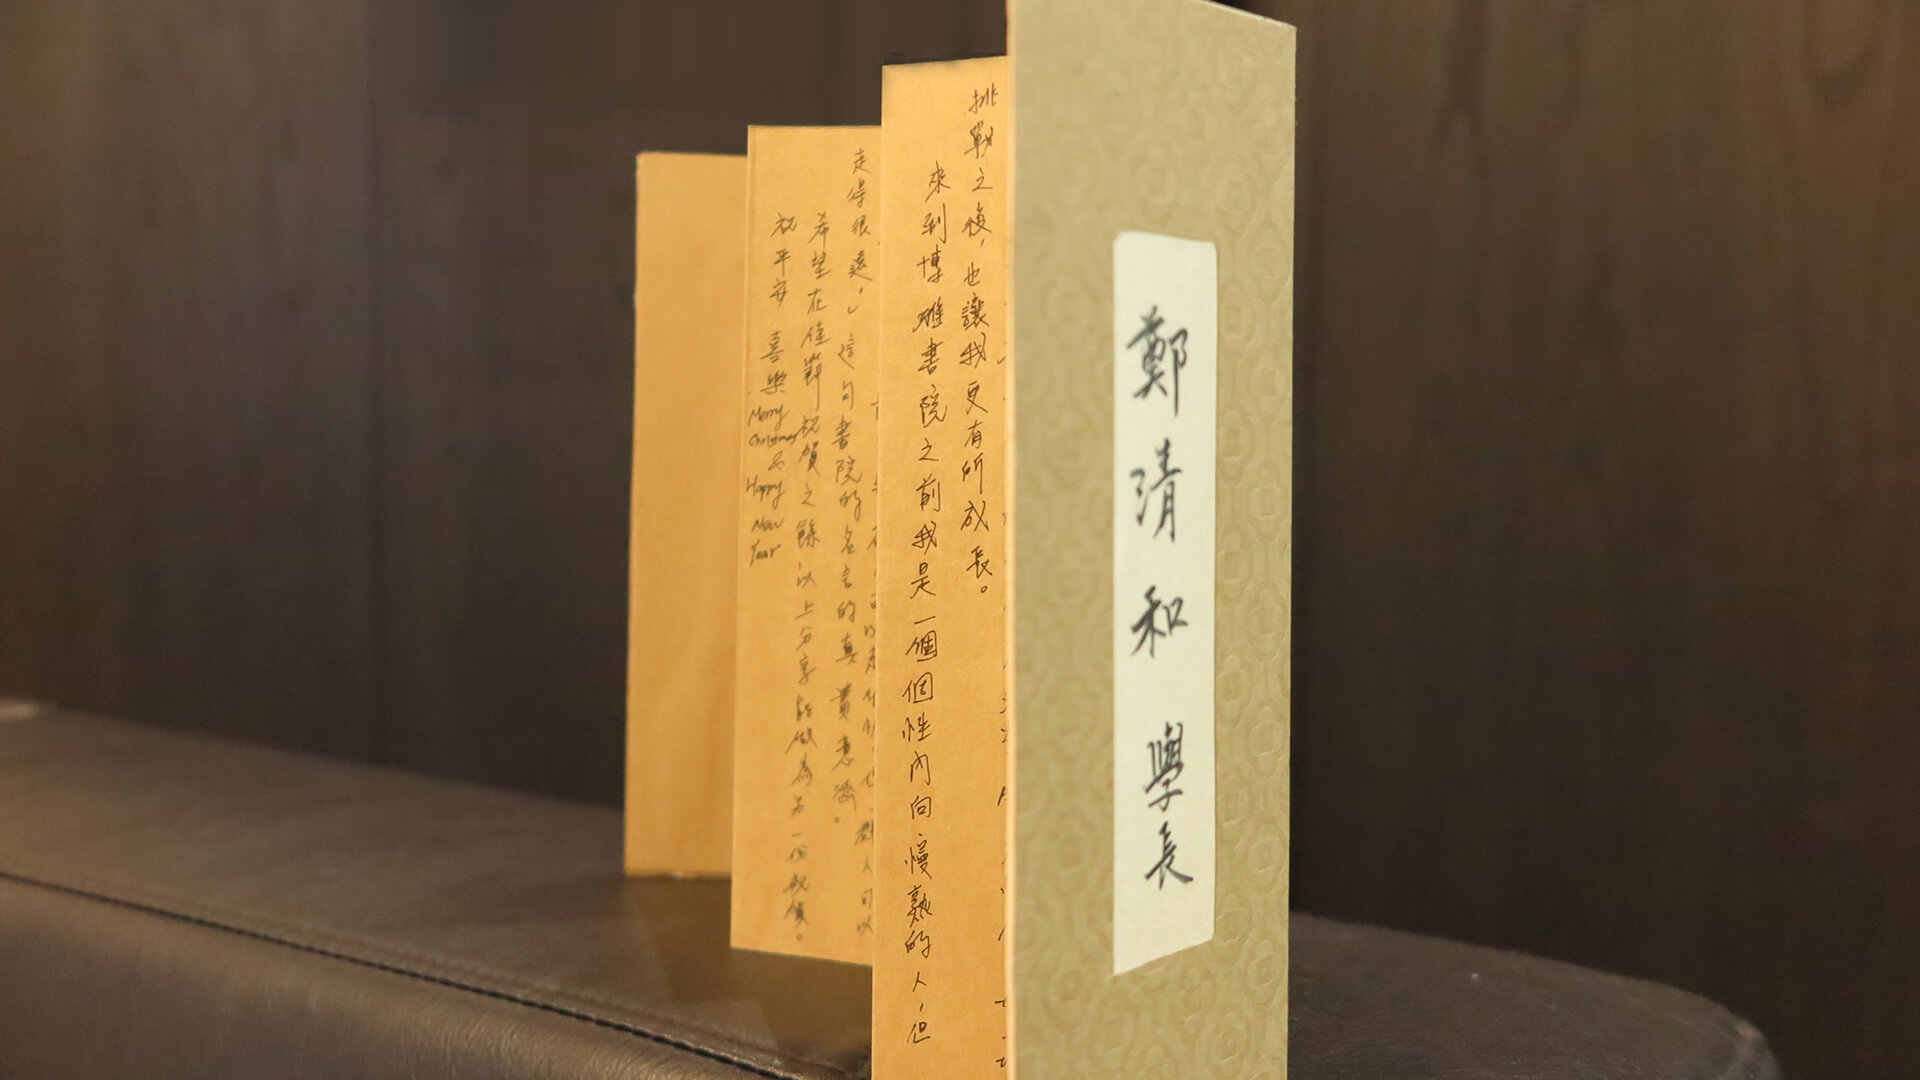 鄭清和 學長
挑戰之後，也讓我更有所成長。
來到博雅書院之前我是一個個性內向慢熟的人，但
人可以
走得很遠。」這句書院的名言的真實意涵。
希望在佳節祝賀之餘，以上分享能做為另一份祝賀。
祝平安 喜樂
Merry
Christmas
&
Happy
New
Year